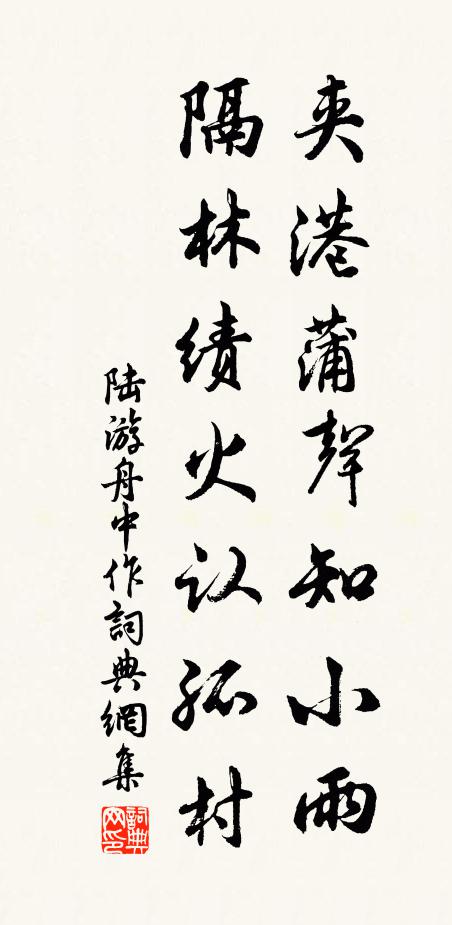 夹港蒲聲知小雨
隔林绩火认孤村
陆游舟中作詞典網集
詞典网印